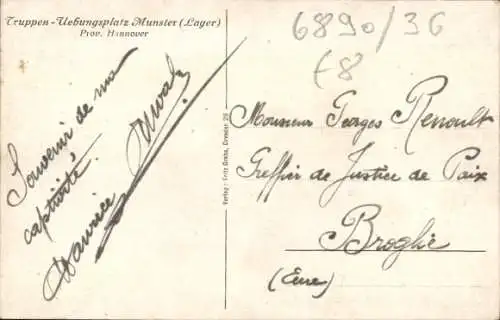 Truppen-Uebungsplatz Munster (Lager)
Prov. Hannover
6890/36
Souvenir de ma
captivité.
Maurice Duval
Verlag: Fritz Grohs, Dresden 29
Monsieur Georges Renoult
Greffier de Justice de Paix
Broglie
(Eure)